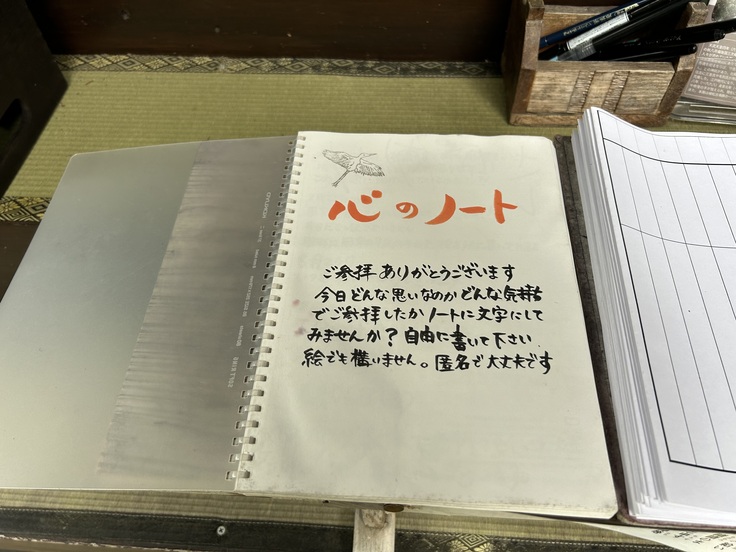 心のノート
ご参拝ありがとうございます
今日どんな思いなのかどんな気持
でご参拝したかノートに文字にして
みませんか？自由に書いて下さい
絵でも構いません。匿名で大丈夫です